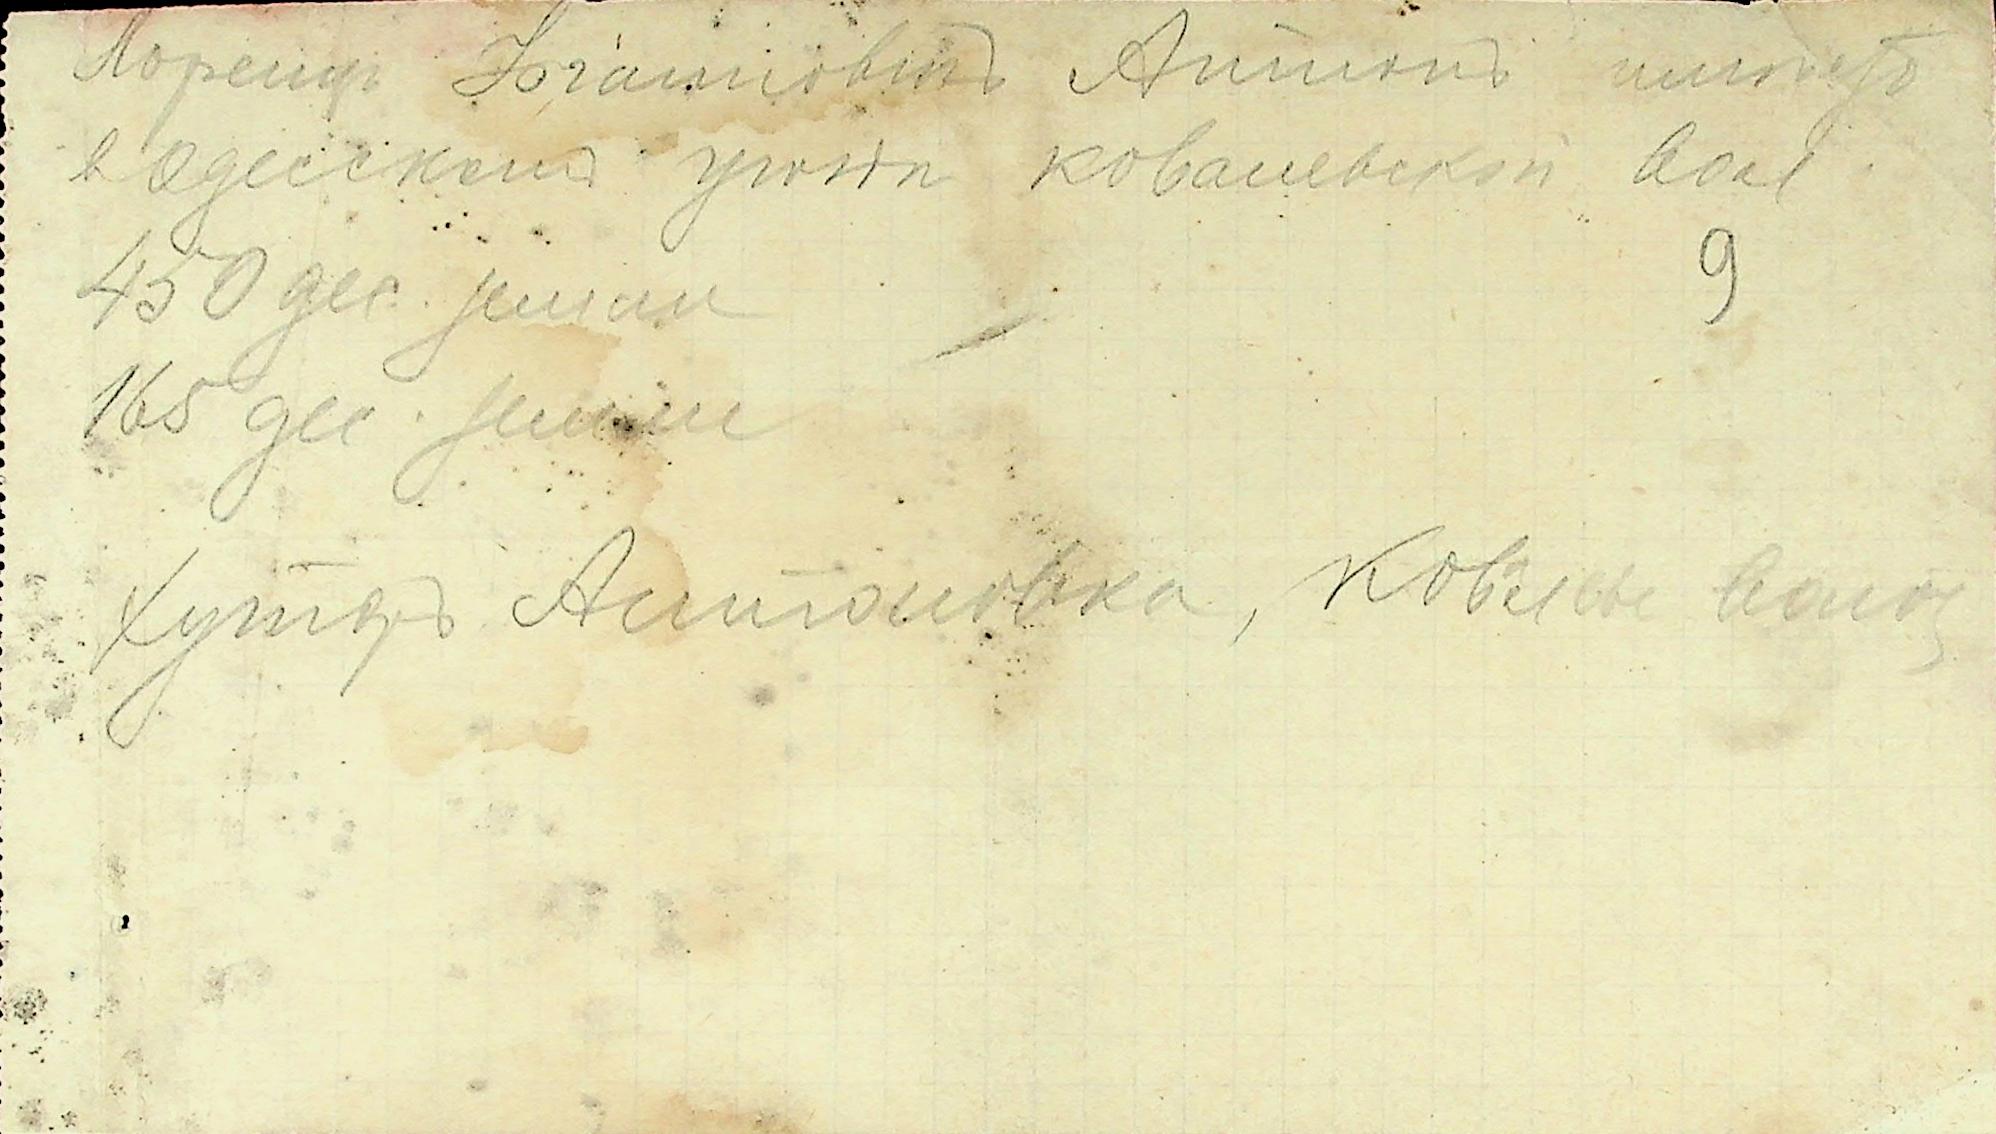 Лоренц Іоганновичъ Антонъ имѣетъ
в Одесскомъ уѣздѣ Ковалевской вол.
9
450 дес. земли
165 дес. земли
Хуторъ Антоновка, Ковалев волос